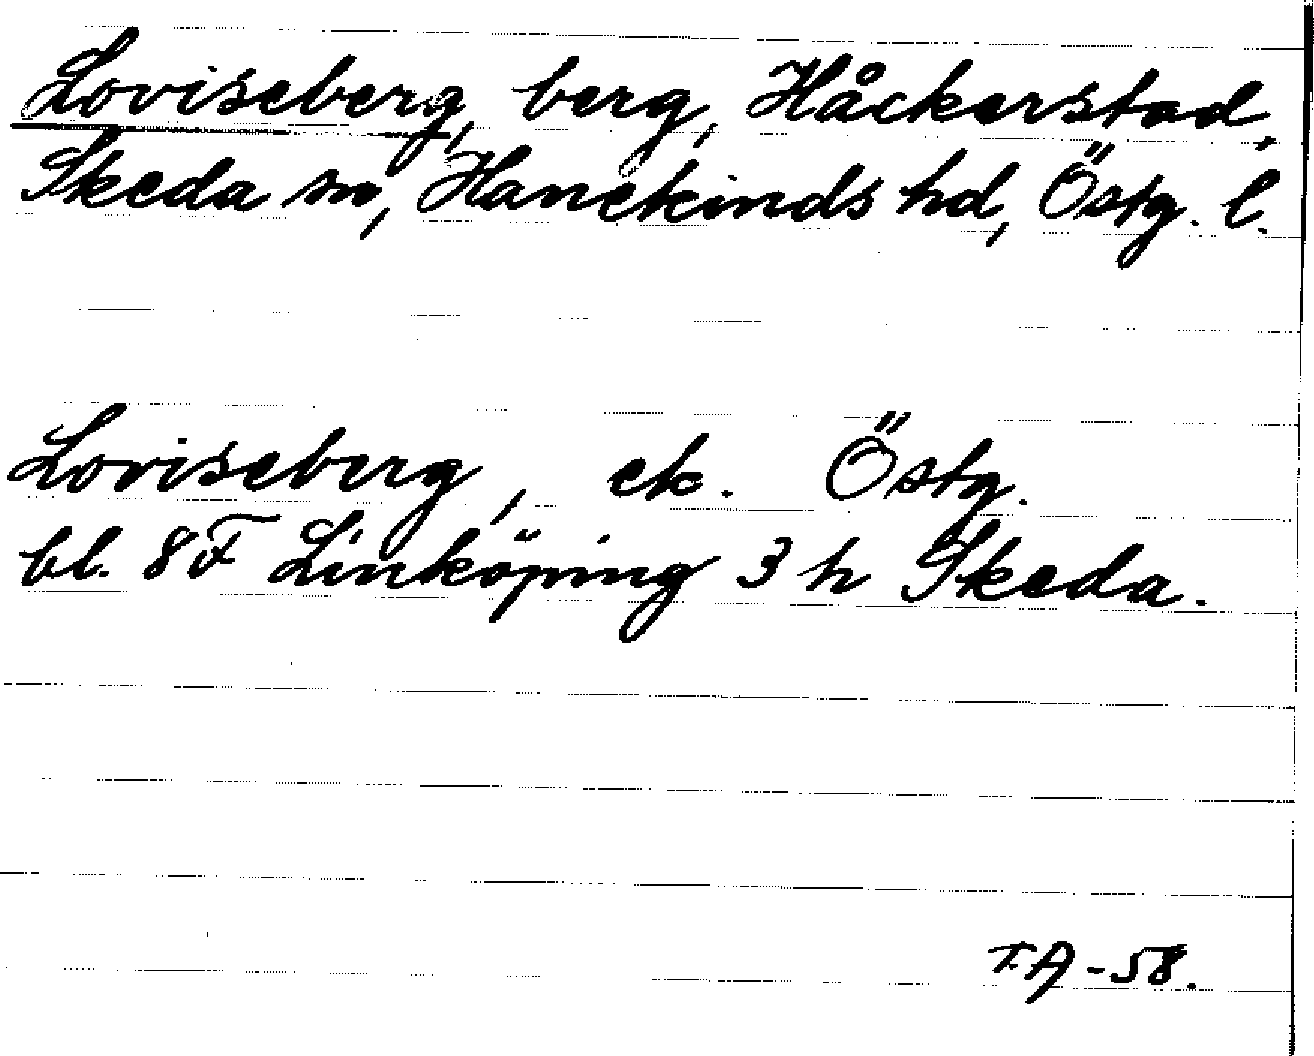 Loviseberg, berg, Håckerstad,
Skeda sn, Hanekinds hd, Östg. l.
Loviseberg, ek. Östg.
bl. 8F Linköping 3 h Skeda.
T.A -58.